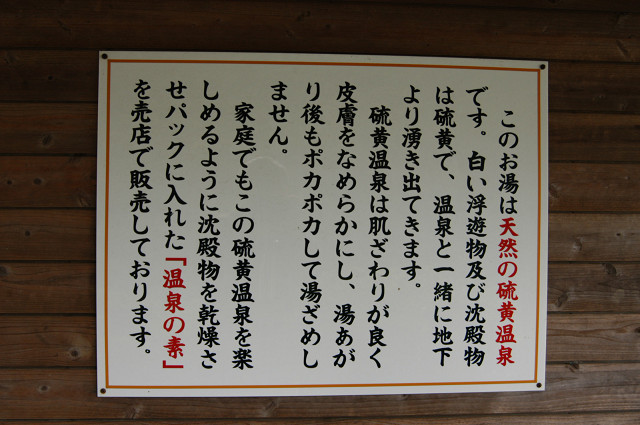 このお湯は天然の硫黄温泉
です。白い浮遊物及び沈殿物
は硫黄で、温泉と一緒に地下
より湧き出てきます。
硫黄温泉は肌ざわりが良く
皮膚をなめらかにし、湯あが
り後もポカポカして湯ざめし
ません。
家庭でもこの硫黄温泉を楽
しめるように沈殿物を乾燥さ
せパックに入れた「温泉の素」
を売店で販売しております。